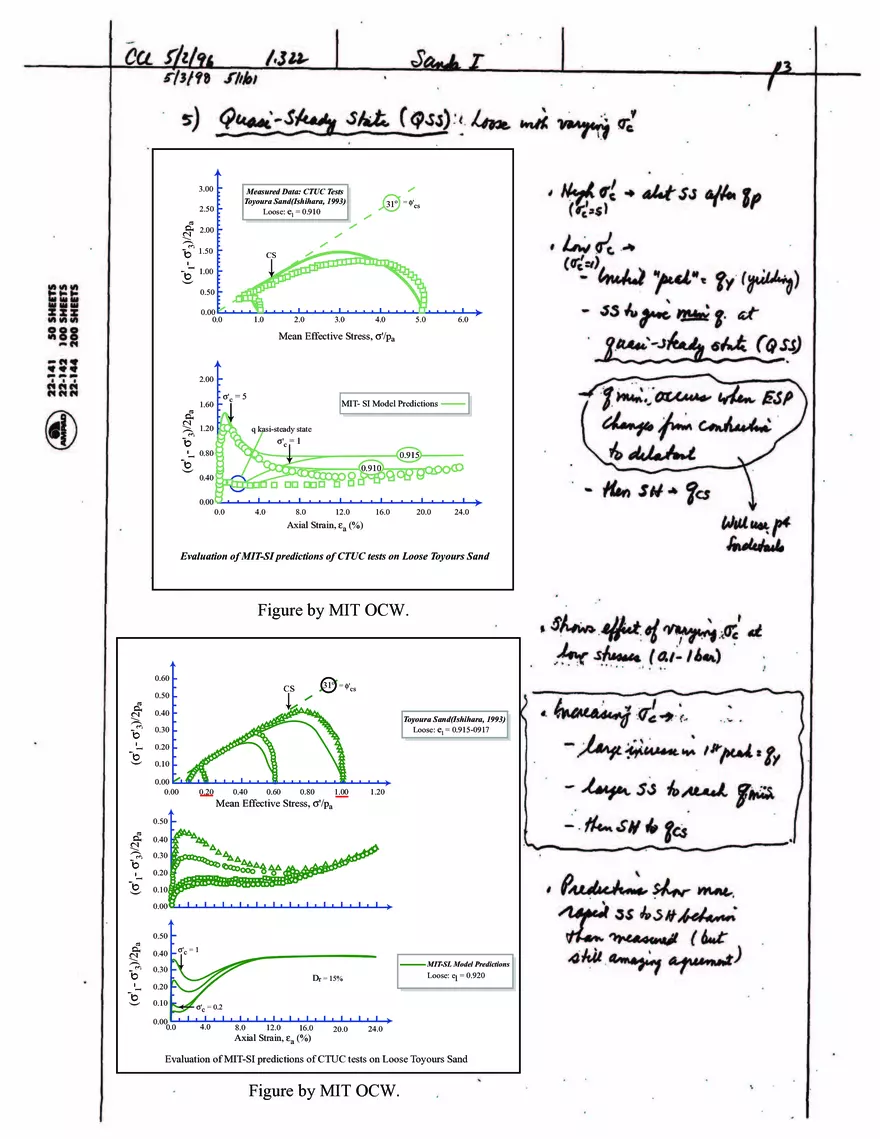 CCL 5/2/96 1.322 Sands I p3
5/3/98 5/1/01
5) Quasi-Steady State (QSS): Loose with varying σ'c
22-141 50 SHEETS
22-142 100 SHEETS
22-144 200 SHEETS
AMPAD
3.00
2.50
2.00
1.50
1.00
0.50
0.00
(σ'1 - σ'3)/2pa
Measured Data: CTUC Tests
Toyoura Sand(Ishihara, 1993)
Loose: ei = 0.910
31° = ϕ'cs
CS
0.0 1.0 2.0 3.0 4.0 5.0 6.0
Mean Effective Stress, σ'/pa
2.00
1.60
1.20
0.80
0.40
0.00
(σ'1 - σ'3)/2pa
σ'c = 5
MIT- SI Model Predictions
q kasi-steady state
σ'c = 1
0.915
0.910
0.0 4.0 8.0 12.0 16.0 20.0 24.0
Axial Strain, εa (%)
Evaluation of MIT-SI predictions of CTUC tests on Loose Toyours Sand
Figure by MIT OCW.
• High σ'c → alot SS after qp
(σ'c=5)
• Low σ'c →
(σ'c=1)
- Initial "peak" = qy (yielding)
- SS to give min q. at
quasi-steady state (QSS)
→ q min. occurs when ESP
changes from contractive
to dilatant
- then SH → qcs
Will use p4
for details
0.60
0.50
0.40
0.30
0.20
0.10
0.00
(σ'1 - σ'3)/2pa
CS
31° = ϕ'cs
Toyoura Sand(Ishihara, 1993)
Loose: ei = 0.915-0917
0.00 0.20 0.40 0.60 0.80 1.00 1.20
Mean Effective Stress, σ'/pa
0.50
0.40
0.30
0.20
0.10
0.00
(σ'1 - σ'3)/2pa
0.50
0.40
0.30
0.20
0.10
0.00
(σ'1 - σ'3)/2pa
σ'c = 1
σ'c = 0.2
Dr = 15%
MIT-SL Model Predictions
Loose: el = 0.920
0.0 4.0 8.0 12.0 16.0 20.0 24.0
Axial Strain, εa (%)
Evaluation of MIT-SI predictions of CTUC tests on Loose Toyours Sand
Figure by MIT OCW.
• Shows effect of varying σ'c at
low stresses (0.1-1 bar)
• Increasing σ'c →
- large increase in 1st peak = qy
- larger SS to reach qmin
- then SH to qcs
• Predictions show more
rapid SS to SH behavior
than measured (but
still amazing agreement)